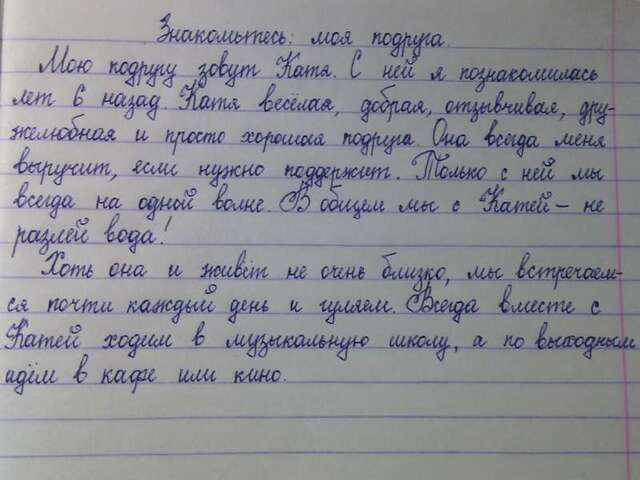 Знакомьтесь: моя подруга.
Мою подругу зовут Катя. С ней я познакомилась
лет 6 назад. Катя весёлая, добрая, отзывчивая, дру-
желюбная и просто хорошая подруга. Она всегда меня
выручит, если нужно поддержит. Только с ней мы
всегда на одной волне. В общем мы с Катей – не
разлей вода!
Хоть она и живёт не очень близко, мы встречаем-
ся почти каждый день и гуляем. Всегда вместе с
Катей ходим в музыкальную школу, а по выходным
идём в кафе или кино.